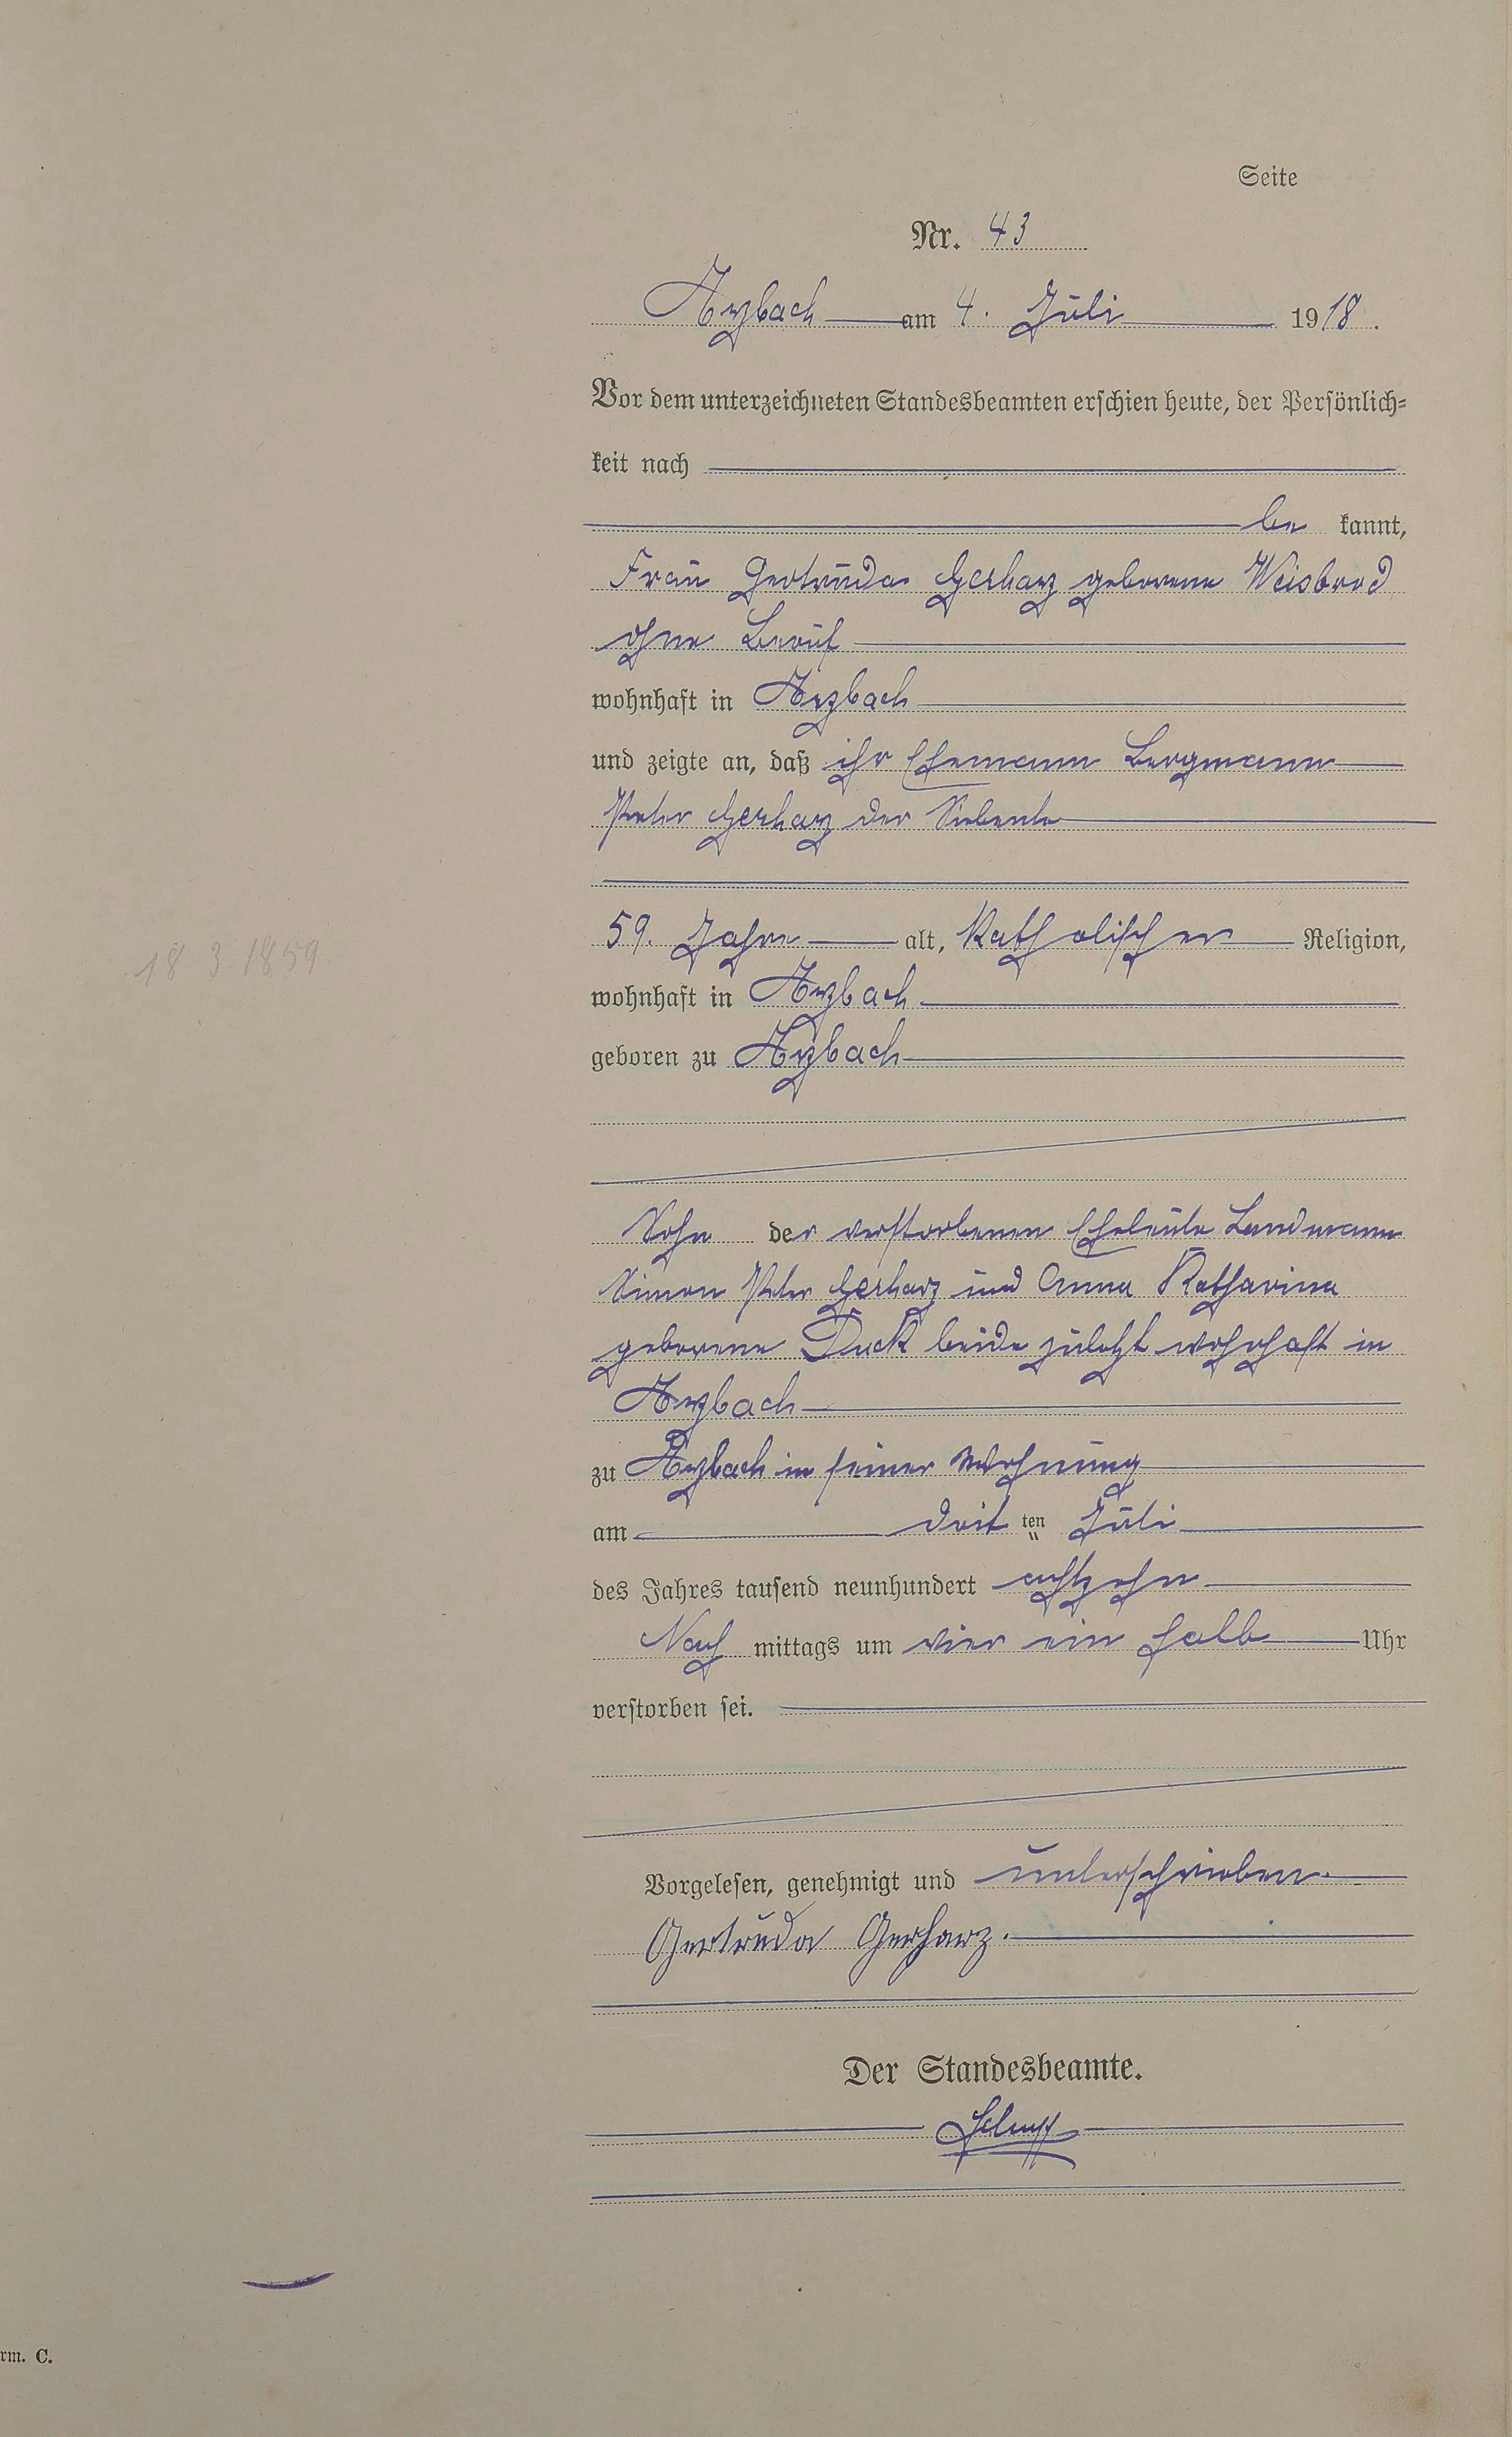 Seite
Nr. 43
Arzbach am 4. Juli 1918.
Vor dem unterzeichneten Standesbeamten erschien heute, der Persönlich=
keit nach
be kannt,
Frau Gertruda Gerharz geborene Weisbrod
ohne Beruf
wohnhaft in Arzbach
und zeigte an, daß ihr Ehemann Bergmann
Peter Gerharz der Siebente
59. Jahre alt, Katholischer Religion,
18 3 1859
wohnhaft in Arzbach
geboren zu Arzbach
Sohn der verstorbenen Eheleute Landmann
Simon Peter Gerharz und Anna Katharina
geborene Duck beide zuletzt wohnhaft in
Arzbach
zu Arzbach in seiner Wohnung
am dritten Juli
des Jahres tausend neunhundert achtzehn
Nach mittags um vier ein halb Uhr
verstorben sei.
Vorgelesen, genehmigt und unterschrieben.
Gertruda Gerharz.
Der Standesbeamte.
rm. C.